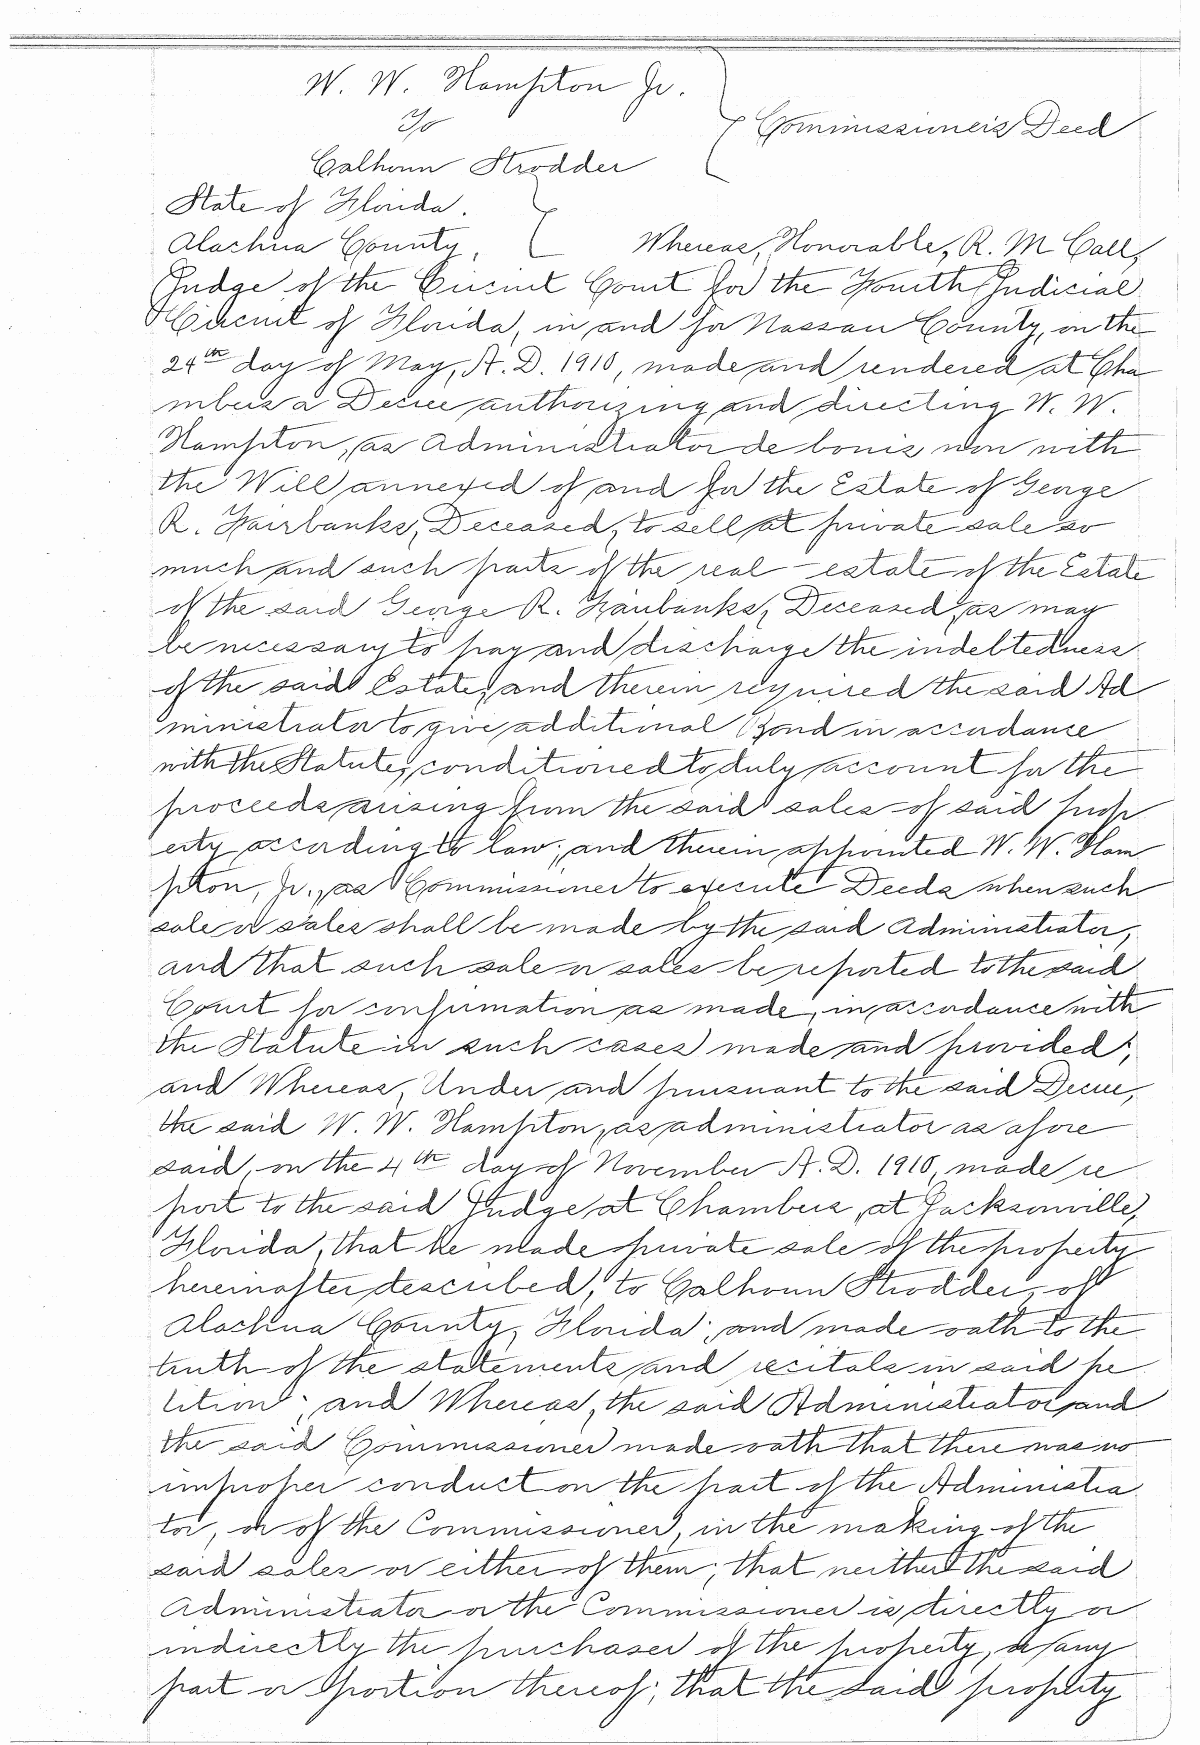 W. W. Hampton Jr.
To
Commissioneis Deed
Calhoun Strodder
State of Florida.
Alachua County,
Whereas, Honorable, R. M Call,
Judge of the Circuit Court for the Fourth Judicial
Circuit of Florida, in and for Nassau County, on the
24th day of May, A. D. 1910, made and rendered at Cha
mbers a Decree authorizing and directing W. W.
Hampton, as Administrator de bonis non with
the Will annexed of and for the Estate of George
R. Fairbanks, Deceased, to sell at private sale so
much and such parts of the real-estate of the Estate
of the said George R. Fairbanks, Deceased, as may
be necessary to pay and discharge the indebtedness
of the said Estate, and therein required the said Ad
ministrator to give additional Bond in accordance
with the Statute, conditioned to duly account for the
proceeds arising from the said sales of said prop
erty according to law; and therein appointed W. W. Ham
pton, Jr., as Commissioner to execute Deeds when such
sale or sales shall be made by the said Administrator,
and that such sale or sales be reported to the said
Court for confirmation as made, in accordance with
the Statute in such cases made and provided;
and Whereas, Under and pursuant to the said Decree,
the said W. W. Hampton, as administrator as afore
said, on the 4th day of November A. D. 1910, made re
port to the said Judge at Chambers, at Jacksonville,
Florida, that he made private sale of the property
hereinafter described, to Calhoun Strodder, of
Alachua County, Florida; and made oath to the
truth of the statements and recitals in said pe
tition; and Whereas, the said Administrator and
the said Commissioner made oath that there was no
improper conduct on the part of the Administra
tor, or of the Commissioner, in the making of the
said sales or either of them; that neither the said
Administrator or the Commissioner is directly or
indirectly the purchaser of the property, or any
part or portion thereof; that the said property